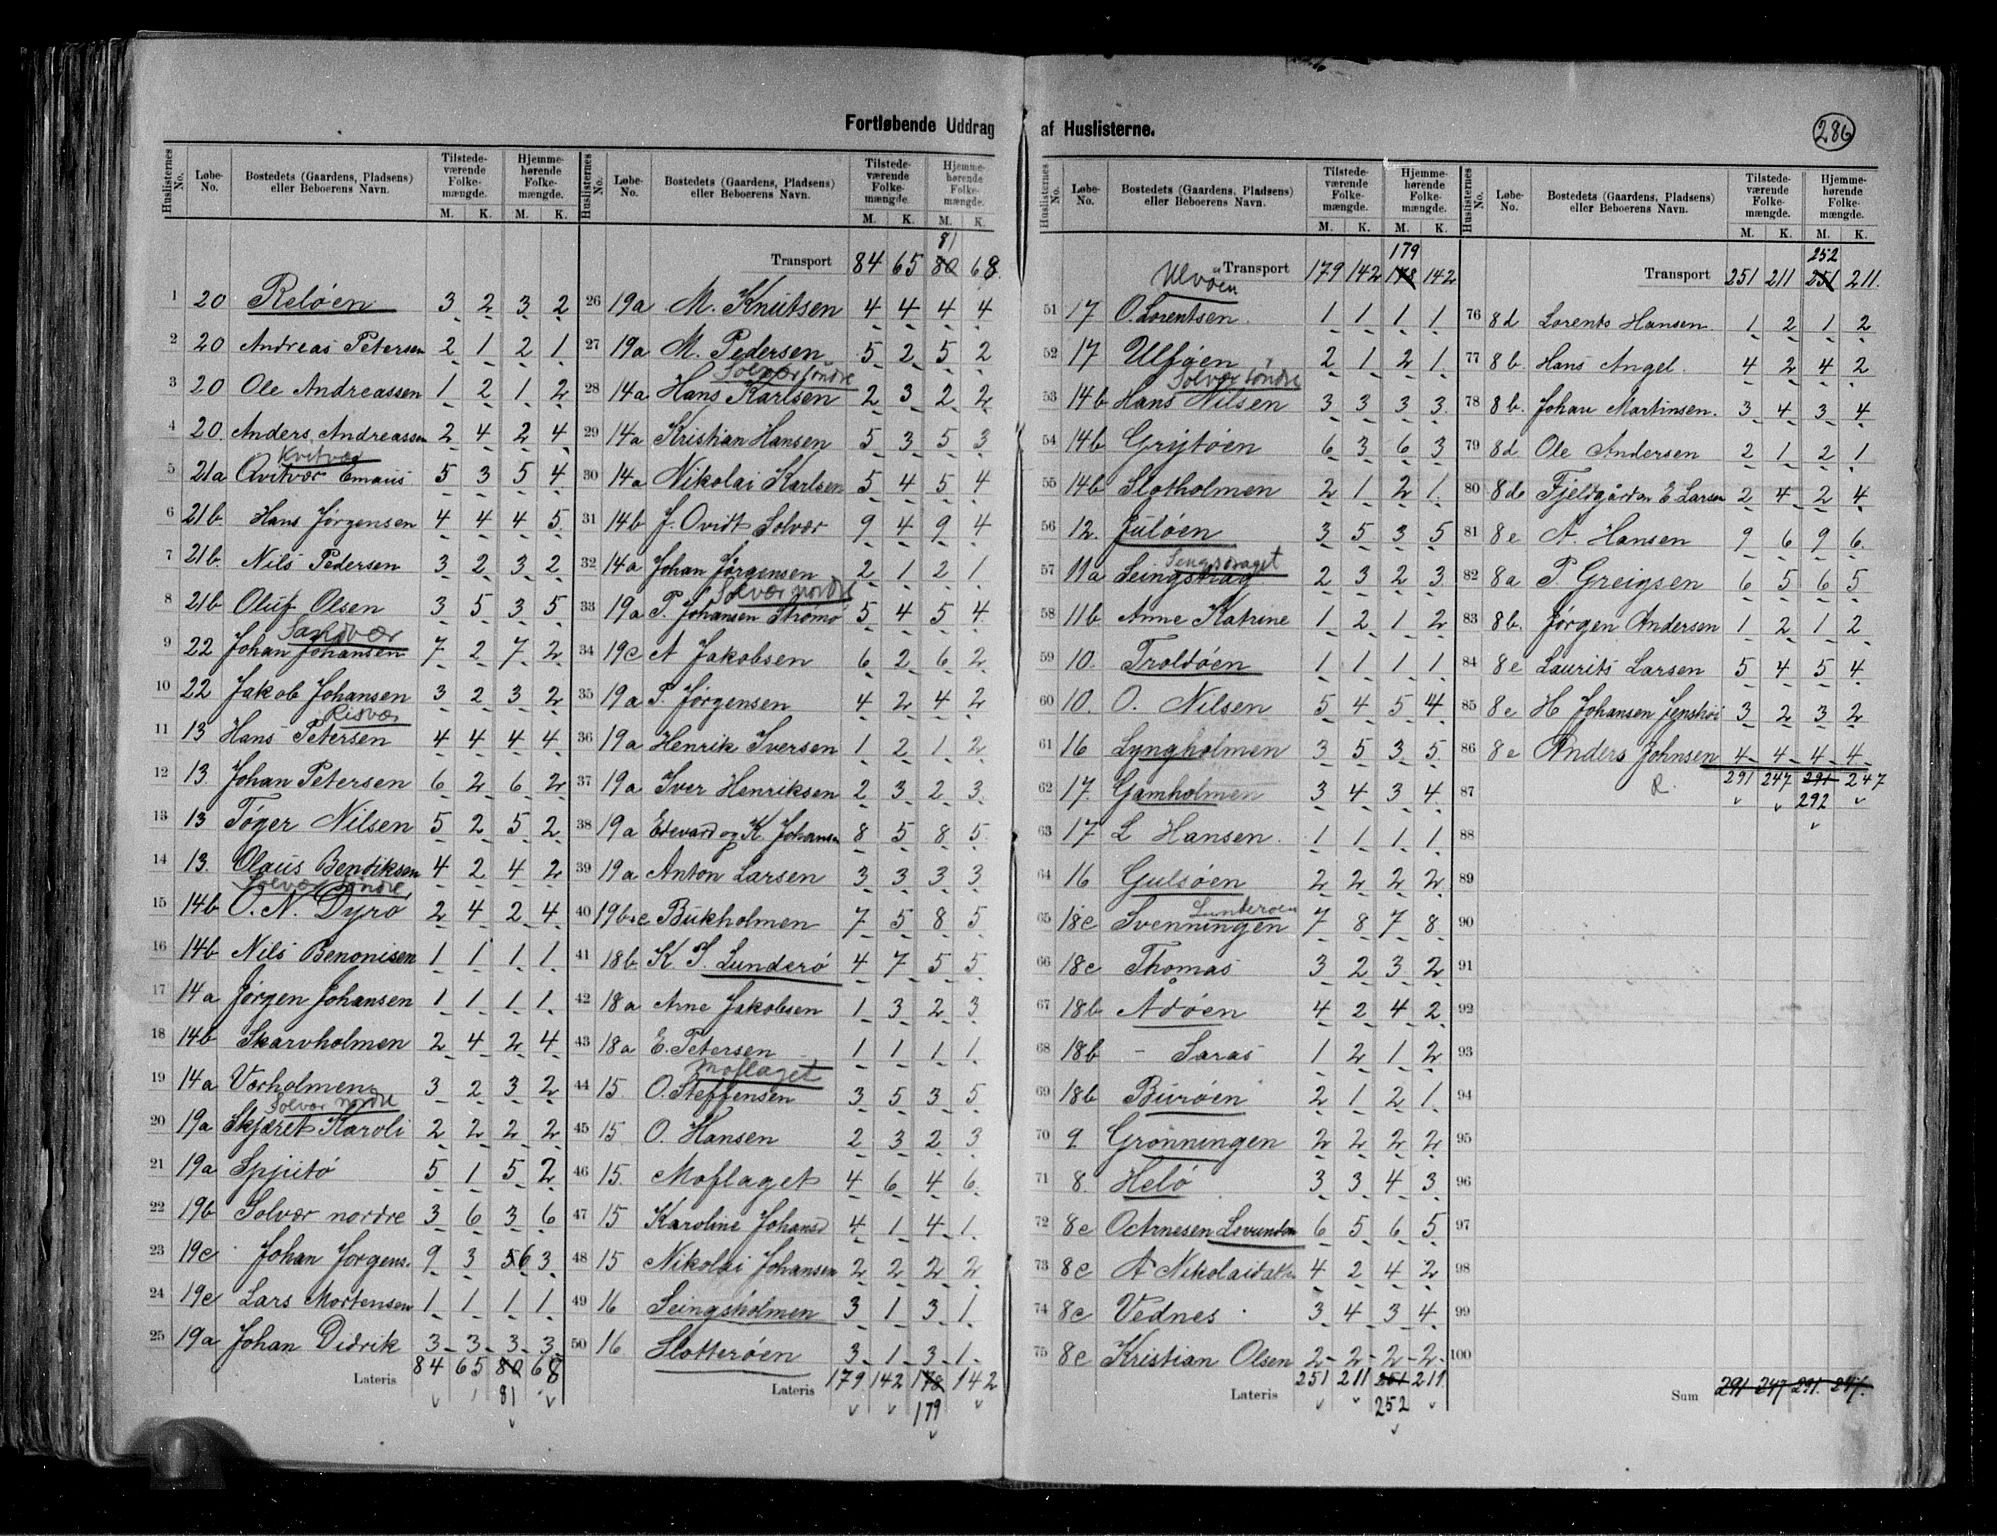 Fortløbende Uddrag af Huslisterne.
286
Huslisternes No. Løbe-No. Bostedets (Gaardens, Pladsens) eller Beboerens Navn. Tilstedeværende Folkemængde. M. K. Hjemmehørende Folkemængde. M. K.
1 20 Reløen 3 2 3 2
2 20 Andreas Petersen 2 1 2 1
3 20 Ole Andreassen 1 2 1 2
4 20. Anders Andreassen 2 4 2 4
Kvitvær
5 21a Qvitvær Emaus 5 3 5 4
6 21b. Hans Jørgensen 4 4 4 5
7 21b. Nils Pedersen 3 2 3 2
8 21b Oluf Olsen 3 5 3 5
Sandvær
9 22 Johan Johansen 7 2 7 2
10 22 Jakob Johansen 3 2 3 2
Risvær
11 13 Hans Petersen 4 4 4 4
12 13. Johan Petersen 6 2 6 2
13 13 Tøger Nilsen 5 2 5 2
14 13. Olaus Bendiksen 4 2 4 2
Solvær søndre
15 14b O. N. Dyrø 2 4 2 4
16 14b Nils Benonisen 1 1 1 1
17 14a Jørgen Johansen 1 1 1 1
18 14b Skarvholmen 2 4 2 4
19 14aVærholmen 3 2 3 2
Solvær nordre
20 19a Skjæret Karoli 2 2 2 2
21 19a Spjutø 5 1 5 2
22 19b Solvær nordre 3 6 3 6
23 19c Johan Jorgens. 9 3 5 6 3
24 19c Lars Mortensen 1 1 1 1
25 19a Johan Didrik 3 3 3 3
Lateris 84 65 80 68
81
Huslisternes No. Løbe-No. Bostedets (Gaardens, Pladsens) eller Beboerens Navn. Tilstedeværende Folkemængde. M. K. Hjemmehørende Folkemængde. M. K.
81
Transport 84 65 80 68.
26 19a M. Knutsen 4 4 4 4
27 19a M. Pedersen 5 2 5 2
Solvær søndre
28 14a Hans Karlsen 2 3 2 2
29 14a Kristian Hansen 5 3 5 3
30 14a Nikolai Karlsen 5 4 5 4
31 14b J. Ovidt Solvær 9 4 9 4
32 14a Johan Jørgensen 2 1 2 1
Solvær nordre
33 19a P. Johansen Strømø 5 4 5 4
34 19c A Jakobsen 6 2 6 2
35 19a P. Jørgensen 4 2 4 2
36 19a Henrik Iversen 1 2 1 2
37 19a Iver Henriksen 2 3 2 3
38 19a Edevard og K. Johansen 8 5 8 5
39 19a Anton Larsen 3 3 3 3
40 19b+c Bukholmen 7 5 8 5
41 18b K. P. Lunderø 4 7 5 5
42 18a Arne Jakobsen 1 3 2 3
43 18a E. Petersen 1 1 1 1
Moflaget
44 15 O. Steffensen 3 5 3 5
45 15 O. Hansen 2 3 2 3
46 15. Moflaget 4 6 4 6
47 15 Karoline Johansd 4 1 4 1
48 15 Nikolai Johansen 2 2 2 2
49 16 Seingsholmen 3 1 3 1
50 16 Slotterøen 3 1 3 1
Lateris 179 142 178 142
179
Huslisternes No. Løbe-No. Bostedets (Gaardens, Pladsens) eller Beboerens Navn. Tilstedeværende Folkemængde. M. K. Hjemmehørende Folkemængde. M. K.
179
Ulvøen Transport 179 142 178 142
51 17 O. Lorentsen. 1 1 1 1
52 17 Ulføen 2 1 2 1
Solvær søndre
53 14b Hans Nilsen 3 3 3 3
54 14b Grejtøen 6 3 6 3
55 14b Slotholmen 2 1 2 1
56 12. Juløen 3 5 3 5
Sengsdraget
57 11a Seingsdrag 2 3 2 3
58 11b Anne Katrine 1 2 1 2
59 10. Troldøen 1 1 1 1
60 10. O. Nilsen 5 4 5 4
61 16 Lyngholmen 3 5 3 5
62 17. Gamholmen 3 4 3 4
63 17 L Hansen. 1 1 1 1
64 16 Gulsøen 2 2 2 2
Lunderøen
65 18c Svenningen 7 8 7 8
66 18c Thomas 3 2 3 2
67 18b Adøen 4 2 4 2
68 18b - Saras 1 2 1 2
69 18b Burøen 2 1 2 1
70 9 Grønningen 2 2 2 2
71 8. Helø 3 3 4 3
72 8c O Arnesen Lovunden 6 5 6 5
73 8c A Nikolai 4 2 4 2
74 8c Vednes 3 4 3 4
75 8c Kristian Olsen 2 2 2 2
Lateris 251 211 251 211
252
Huslisternes No. Løbe-No. Bostedets (Gaardens, Pladsens) eller Beboerens Navn. Tilstedeværende Folkemængde. M. K. Hjemmehørende Folkemængde. M. K.
252
Transport 251 211 251 211.
76 8d Lorents Hansen. 1 2 1 2
77 8b. Hans Angel. 4 2 4 2
78 8b. Johan Martinsen. 3 4 3 4
79 8d Ole Andersen 2 1 2 1
80 8d Fjeldgården E. Larsen 2 4 2 4
81 8e A. Hansen 9 6 9 6
82 8a P. Greigsen 6 5 6 5
83 8b. Jørgen Andersen 1 2 1 2
84 8e Laurits Larsen 5 4 5 4
85 8e H Johansen 3 2 3 2
86 8e Anders Johnsen 4 4 4 4
291 247 291 247
87 R. 292
88
89
90
91
92
93
94
95
96
97
98
99
100
Sum 291 247 291. 247.